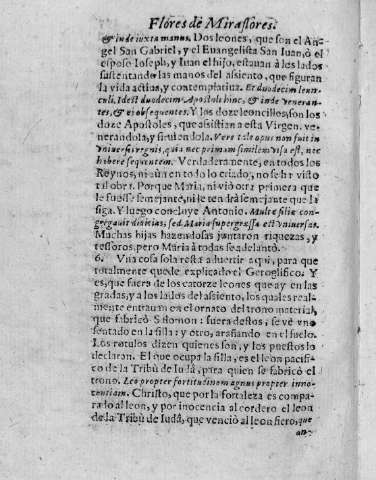 Flores de Miraflores.
& inde iuxta manus. Dos leones, que son el An-
gel San Gabriel, y el Euangelista San Iuan, ò el
esposo Ioseph, y Iuan el hijo, estauan à les lados
sustentando las manos del asiento, que figuran
la vida actiua, y contemplatiua. Et duodecim leun-
culi. Idest duodecim Apostoli hinc, & inde veneran-
tes, & obsequentes. Y los doze leoncillos, son los
doze Apostoles, que asistian a esta Virgen. ve-
nerandola, y siruiendola. Vere tale opus non fuit in
vniuersis regnis, quia nec primam similem visa est, nec
habere sequentem. Verdaderamente, en todos los
Reynos, ni aùn en todo lo criado, no se ha visto
tal obra. Porque Maria, ni viò otra primera que
le fuesse semejante, ni le tendrà semejante que la
siga. Y luego concluye Antonio. Multæ filiæ con-
gregauit diuitias, sed Maria supergressa est vniuersas.
Muchas hijas hazendosas juntaron riquezas, y
tessoros, pero Maria à todas se adelantò.
6. Vna cosa sola resta advertir aqui, para que
totalmente quede explicado el Geroglifico. Y
es, que fuera de los catorze leones que ay en las
gradas, y a los lados del asiento, los quales real-
mente entraron en el ornato del trono material,
que fabricò Salomon: fuera destos, se vè vno
sentado en la silla: y otro, arañando en el suelo.
Los rotulos dizen quienes son, y los puestos lo
declaran. El que ocupa la silla, es el leon pacifi-
co de la Tribù de Iudà, para quien se fabricò el
trono. Leo propter fortitudinem agnus propter inno-
centiam. Christo, que por la fortaleza es compa-
rado al leon, y por inocencia al cordero el leon
de la Tribù de Iudà, que venciò al leon fiero, que
an-